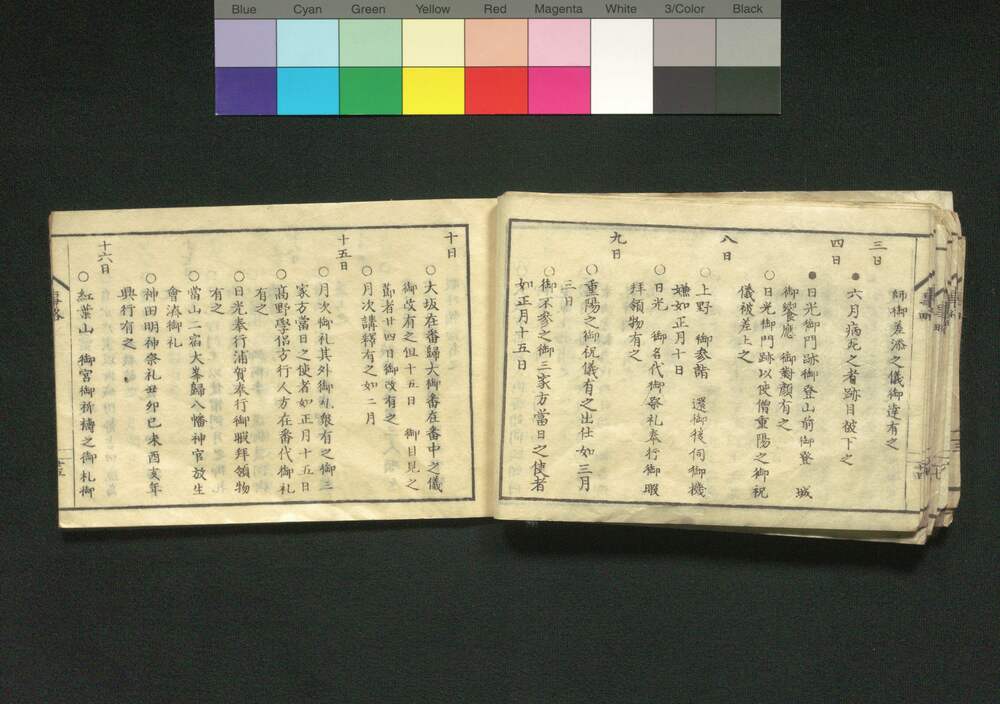 Blue Cyan Green Yellow Red Magenta White 3/Color Black
師御差添之儀御達有之
三日
●六月病死之者跡目被下之
四日
●日光御門跡御登山前御登 城
御饗應 御對顔有之
○日光御門跡以使僧重陽之御祝
儀被差上之
八日
○上野 御参詣 還御後伺御機
嫌如正月十日
○日光 御名代御祭礼奉行御暇
拝領物有之
九日
○重陽之御祝儀有之出仕如三月
三日
○御不参之御三家方當日之使者
如正月十五日
十日
○大坂在番歸大御番在番中之儀
御改有之但十五日 御目見之
節者廿四日御改有之
○月次講釋有之如二月
十五日
○月次御礼其外御礼衆有之御三
家方當日之使者如正月十五日
○高野學侶方行人方在番代御礼
有之
○日光奉行浦賀奉行御暇拝領物
有之
○當山二宿大峯歸八幡神官放生
會済御礼
○神田明神祭礼丑卯巳未酉亥年
興行有之
十六日
○紅葉山 御宮御祈禱之御札御